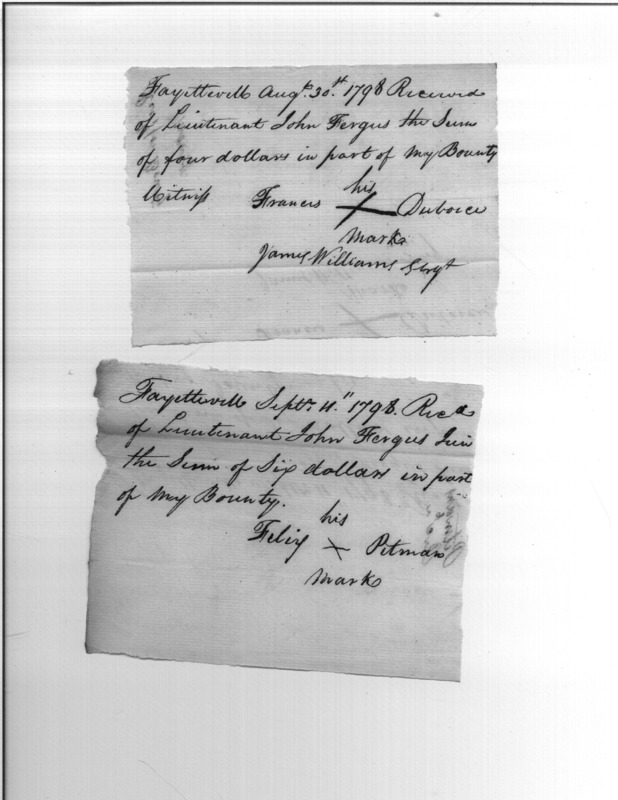 Fayetteville Augt. 30th. 1798 Received
of Lieutenant John Fergus the Sum
of four dollars in part of my Bounty
Witness Francis his X Duboice
mark
James Williams Sergt
Fayetteville Septr. 4." 1798. Recd
of Lieutenant John Fergus Jun
the Sum of Six dollars in part
of my Bounty.
his
Felix X Pitman
mark